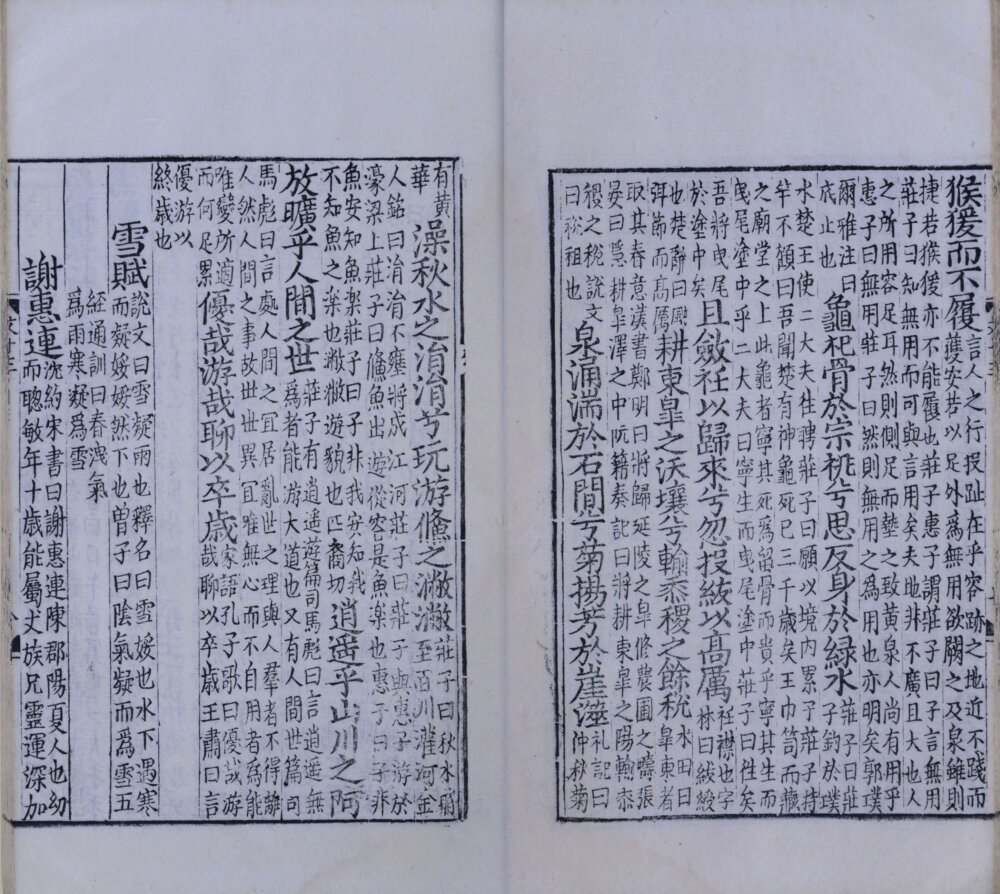 猴猨而不履言人之行投趾在乎容跡之地近不踐而
捷若猴猨亦不能履也莊子惠子謂莊子曰子言無用
莊子曰知無用而可與言用矣夫地非不廣且大也人
之所用容足耳然則側足而墊之致黃泉人尚有用乎
惠子曰無用莊子曰然則無用之為用也亦明矣郭璞
爾雅注曰
底止也
龜祀骨於宗祧兮思反身於綠水莊子曰莊子釣於濮
水楚王使二大夫往聘莊子曰願以境內累子莊子持
竿不顧曰吾聞楚有神龜死已三千歲矣王巾笥而藏
之廟堂之上此龜者寧其死為留骨而貴乎寧其生而
曳尾塗中乎二大夫曰寧生而曳尾塗中莊子曰往矣
吾將曳尾
於塗中矣
且斂衽以歸來兮忽投紱以高厲衽襟也字林曰紱綬
也楚辭曰
弭節而高厲
耕東皐之沃壤兮輸黍稷之餘稅水田曰皐東者
取其春意漢書鄭明曰將歸延陵之皐修農圃之疇張
晏曰隱耕皐澤之中阮籍奏記曰將耕東皐之陽輸黍
稷之稅說文
曰稅租也
泉涌湍於石間兮菊揚芳於崖澨礼記曰仲秋菊
有黃
華
澡秋水之涓涓兮玩游儵之潎潎莊子曰秋水
至百川灌河金
人銘曰涓涓不壅將成江河莊子曰莊子與惠子游於
濠梁上莊子曰儵魚出遊從容是魚樂也惠子曰子非
魚安知魚樂莊子曰子非我安知我
不知魚之樂也潎潎遊貌也匹裔切
逍遥乎山川之阿
放曠乎人間之世莊子有逍遥遊篇司馬彪曰言逍遥無
為者能游大道也又有人間世篇司
馬彪曰言處人間之宜居亂世之理與人羣者不得離
人然人間之事故世世異宜唯無心而不自用者為能
唯變所適
而何足累
優哉游哉聊以卒歲家語孔子歌曰優哉游
哉聊以卒歲王肅曰言
優游以
終歲也
雪賦說文曰雪凝雨也釋名曰雪綏也水下遇寒
而凝綏綏然下也曾子曰陰氣凝而為雪五
經通訓曰春洩氣
為雨寒凝為雪
謝惠連沈約宋書曰謝惠連陳郡陽夏人也幼
而聰敏年十歲能屬文族兄靈運深加